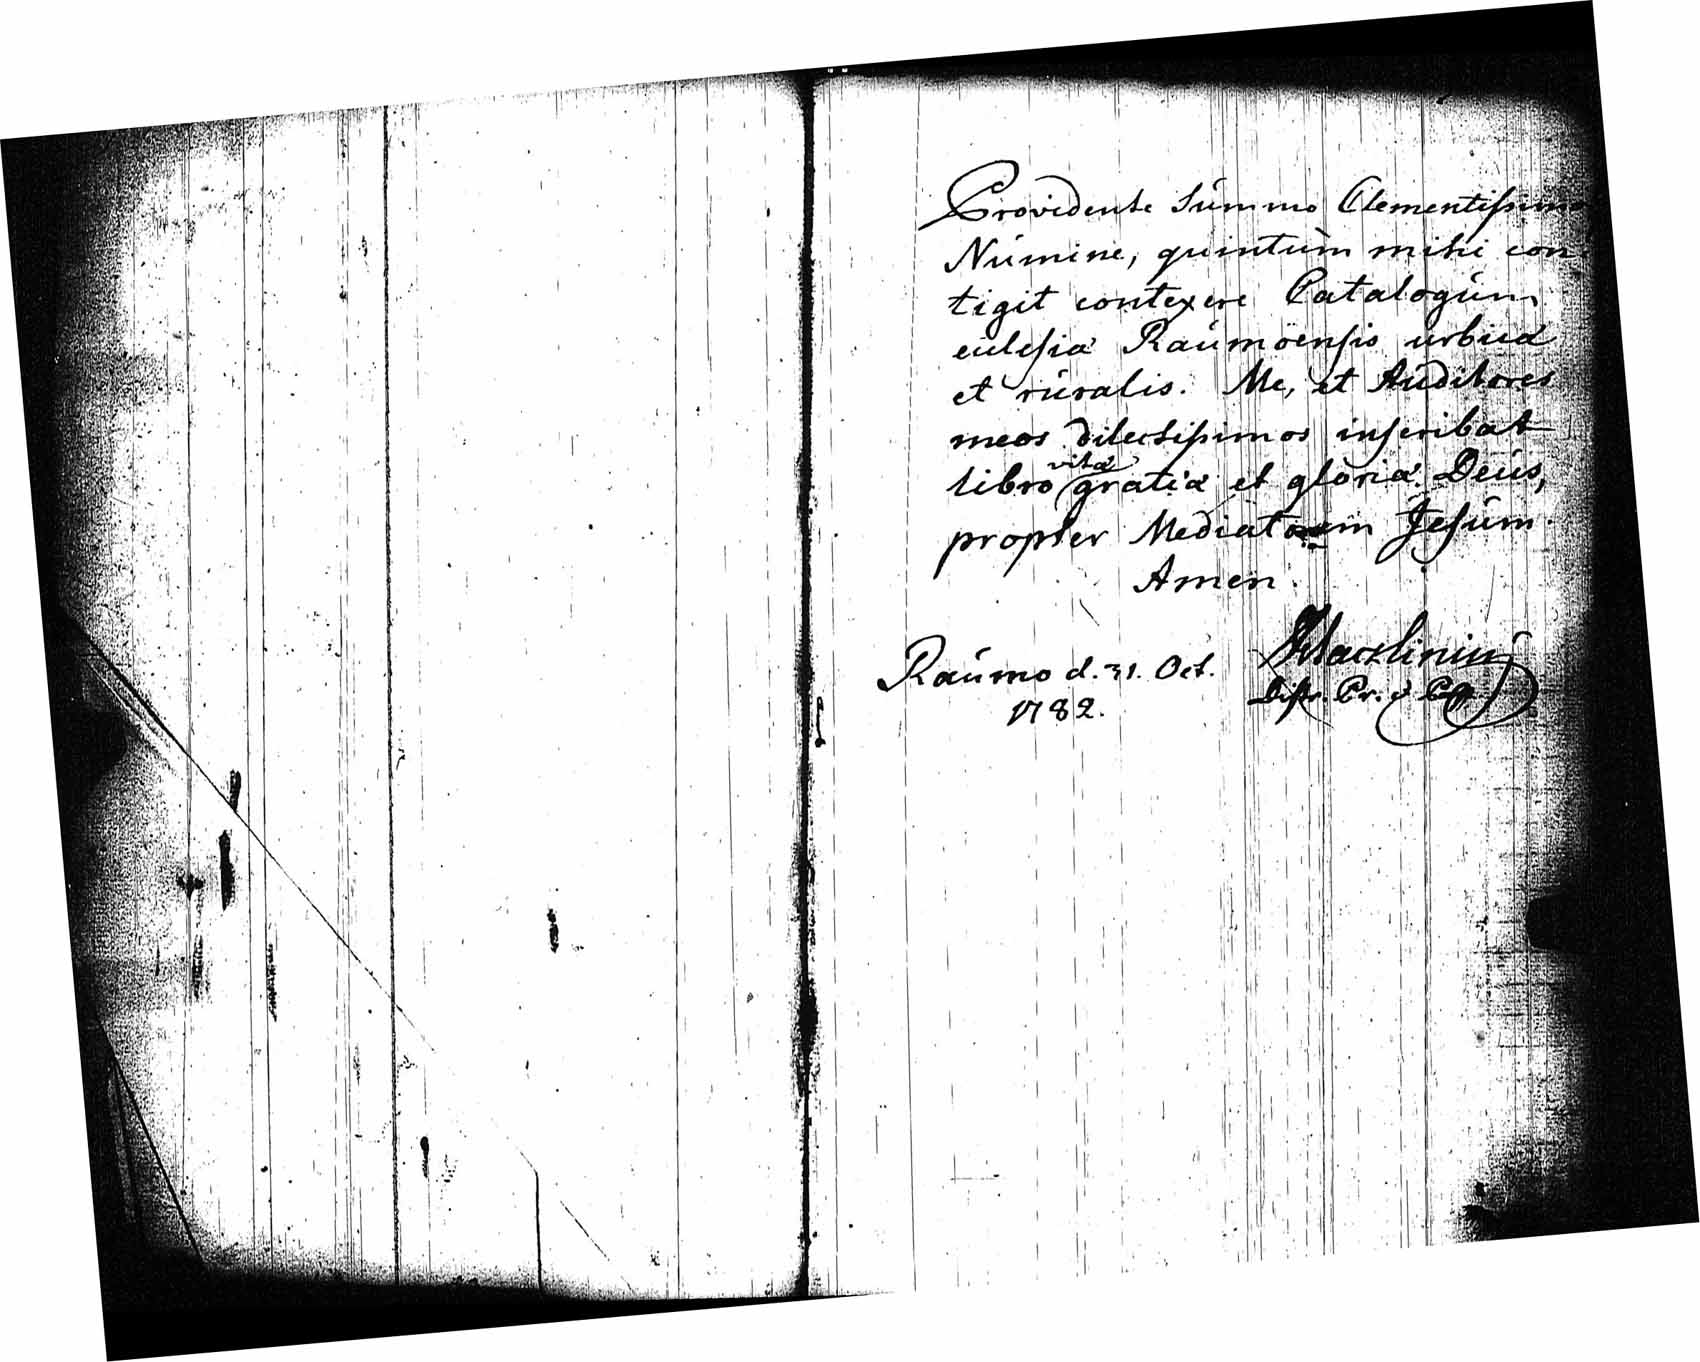 Providente Summo Clementissimo
Numine, quintum mihi con
tigit contexere Catalogum
ecclesiæ Raumoensis urbicæ
et ruralis. Me, et Auditores
meos dilectissimos inscribat
libro vitæ gratiæ et gloriæ Deus,
propter Mediatorem Jesum.
Amen.
Raumo d. 31. Oct.
1782.
Pr. &